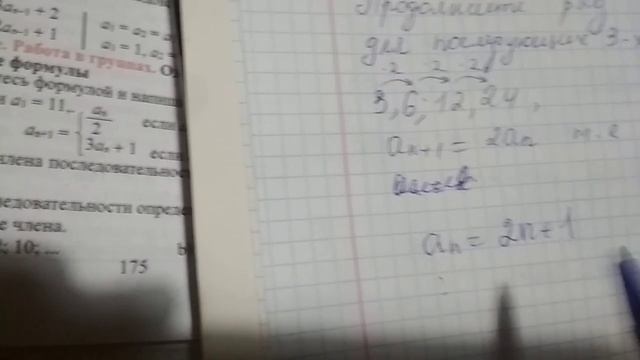 aₙ₋₁ + 2
aₙ₋₁ + 1
a₁ = a₂ =
a₁ = 1, a₂ =
Работа в группах.
е формулы
тесь формулой и
a₁ = 11,
aₙ₊₁ = { aₙ/2 если
3aₙ + 1 если
члена последовательнос
едовательности опреде
е члена.
; 10; ...
175
Продолжите ряд
для последующих 3-х
·2 ·2 ·2
3, 6, 12, 24,
aₙ₊₁ = 2aₙ т.е
aₙ = 2n+1